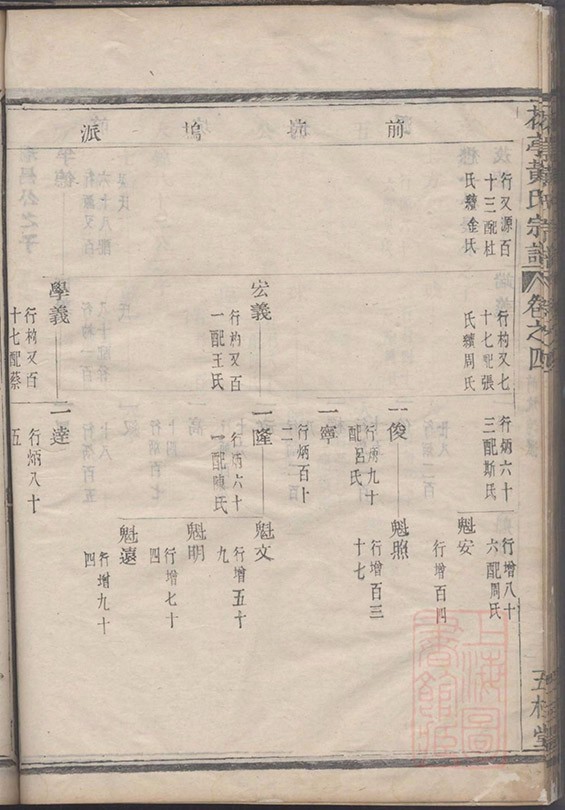 黃氏宗譜
卷之四
前塢派
行又源百
十三配杜
氏續金氏
行杓又七
十七配張
氏續周氏
行炳六十
三配斯氏
行增八十
六配周氏
魁安
行增百四
一俊
行炳九十
配呂氏
魁照
行增百三
十七
一寧
行炳百十
二
宏義
行杓又百
一配王氏
一隆
行炳六十
一配陳氏
魁文
行增五十
九
魁明
行增七十
四
魁遠
行增九十
四
學義
行杓又百
十七配蔡
一達
行炳八十
五
上海圖
書館藏